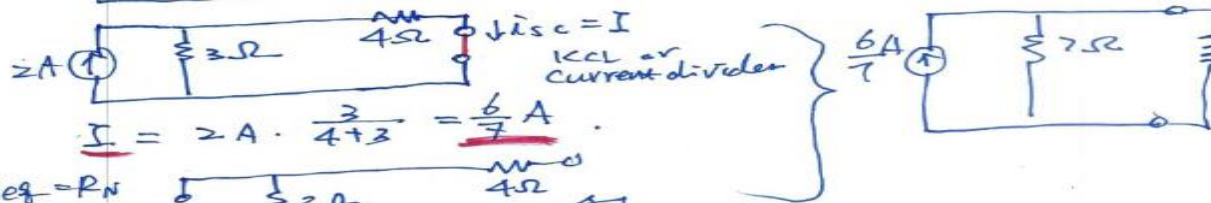 4Ω ↓isc = I
2A 3Ω KCL or
current divider
I = 2A · 3/(4+3) = 6/7 A .
eq = RN 4Ω
6/7 A 7Ω